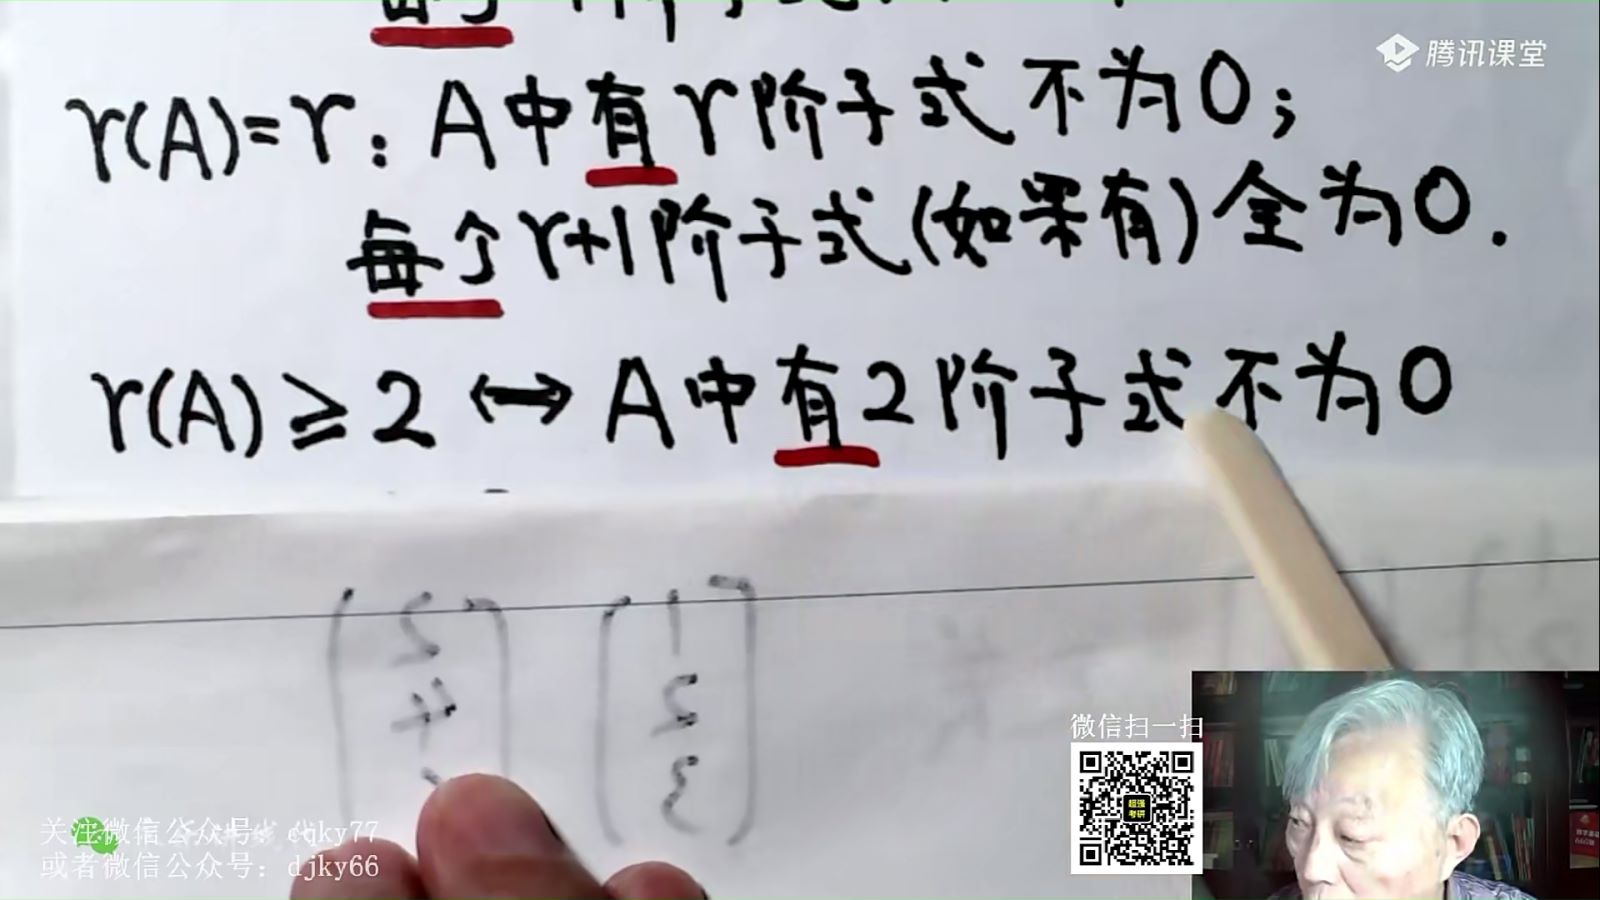 腾讯课堂
r(A)=r：A中有r阶子式不为0；
每个r+1阶子式(如果有)全为0.
r(A)≥2 ↔ A中有2阶子式不为0
微信扫一扫
超强
考研
关注微信公众号：cqky77
或者微信公众号：djky66